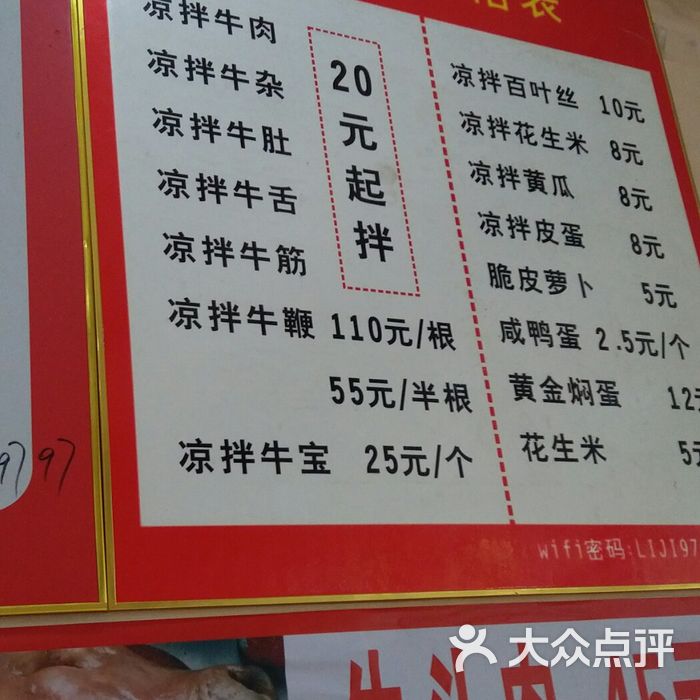 凉拌牛肉
凉拌牛杂
凉拌牛肚
凉拌牛舌
凉拌牛筋
20元起拌
凉拌牛鞭 110元/根
55元/半根
凉拌牛宝 25元/个
凉拌百叶丝 10元
凉拌花生米 8元
凉拌黄瓜 8元
凉拌皮蛋 8元
脆皮萝卜 5元
咸鸭蛋 2.5元/个
黄金焖蛋 12元
花生米 5元
wifi密码:LIJI97
9797
大众点评